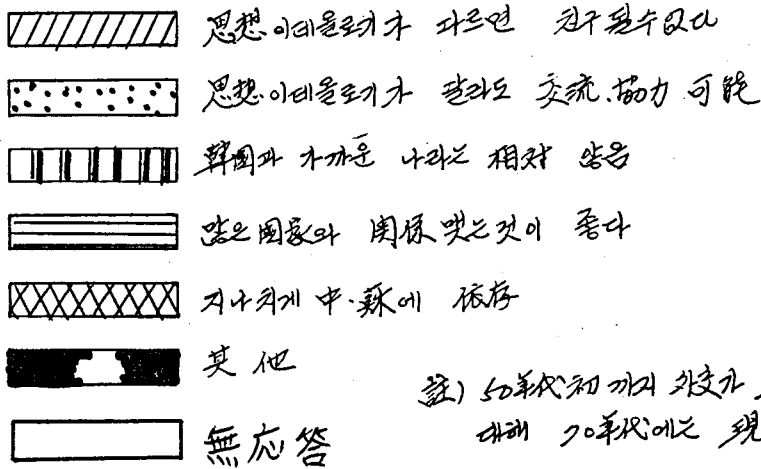 思想.이데올로기가 다르면 친구될수없다
思想.이데올로기가 달라도 交流.協力 可能
韓国과 가까운 나라는 相対 않음
많은 国家와 関係 맺는것이 좋다
지나치게 中.蘇에 依存
其他
註) 50年代初까지 外交가
대해 70年代에는 現
無応答